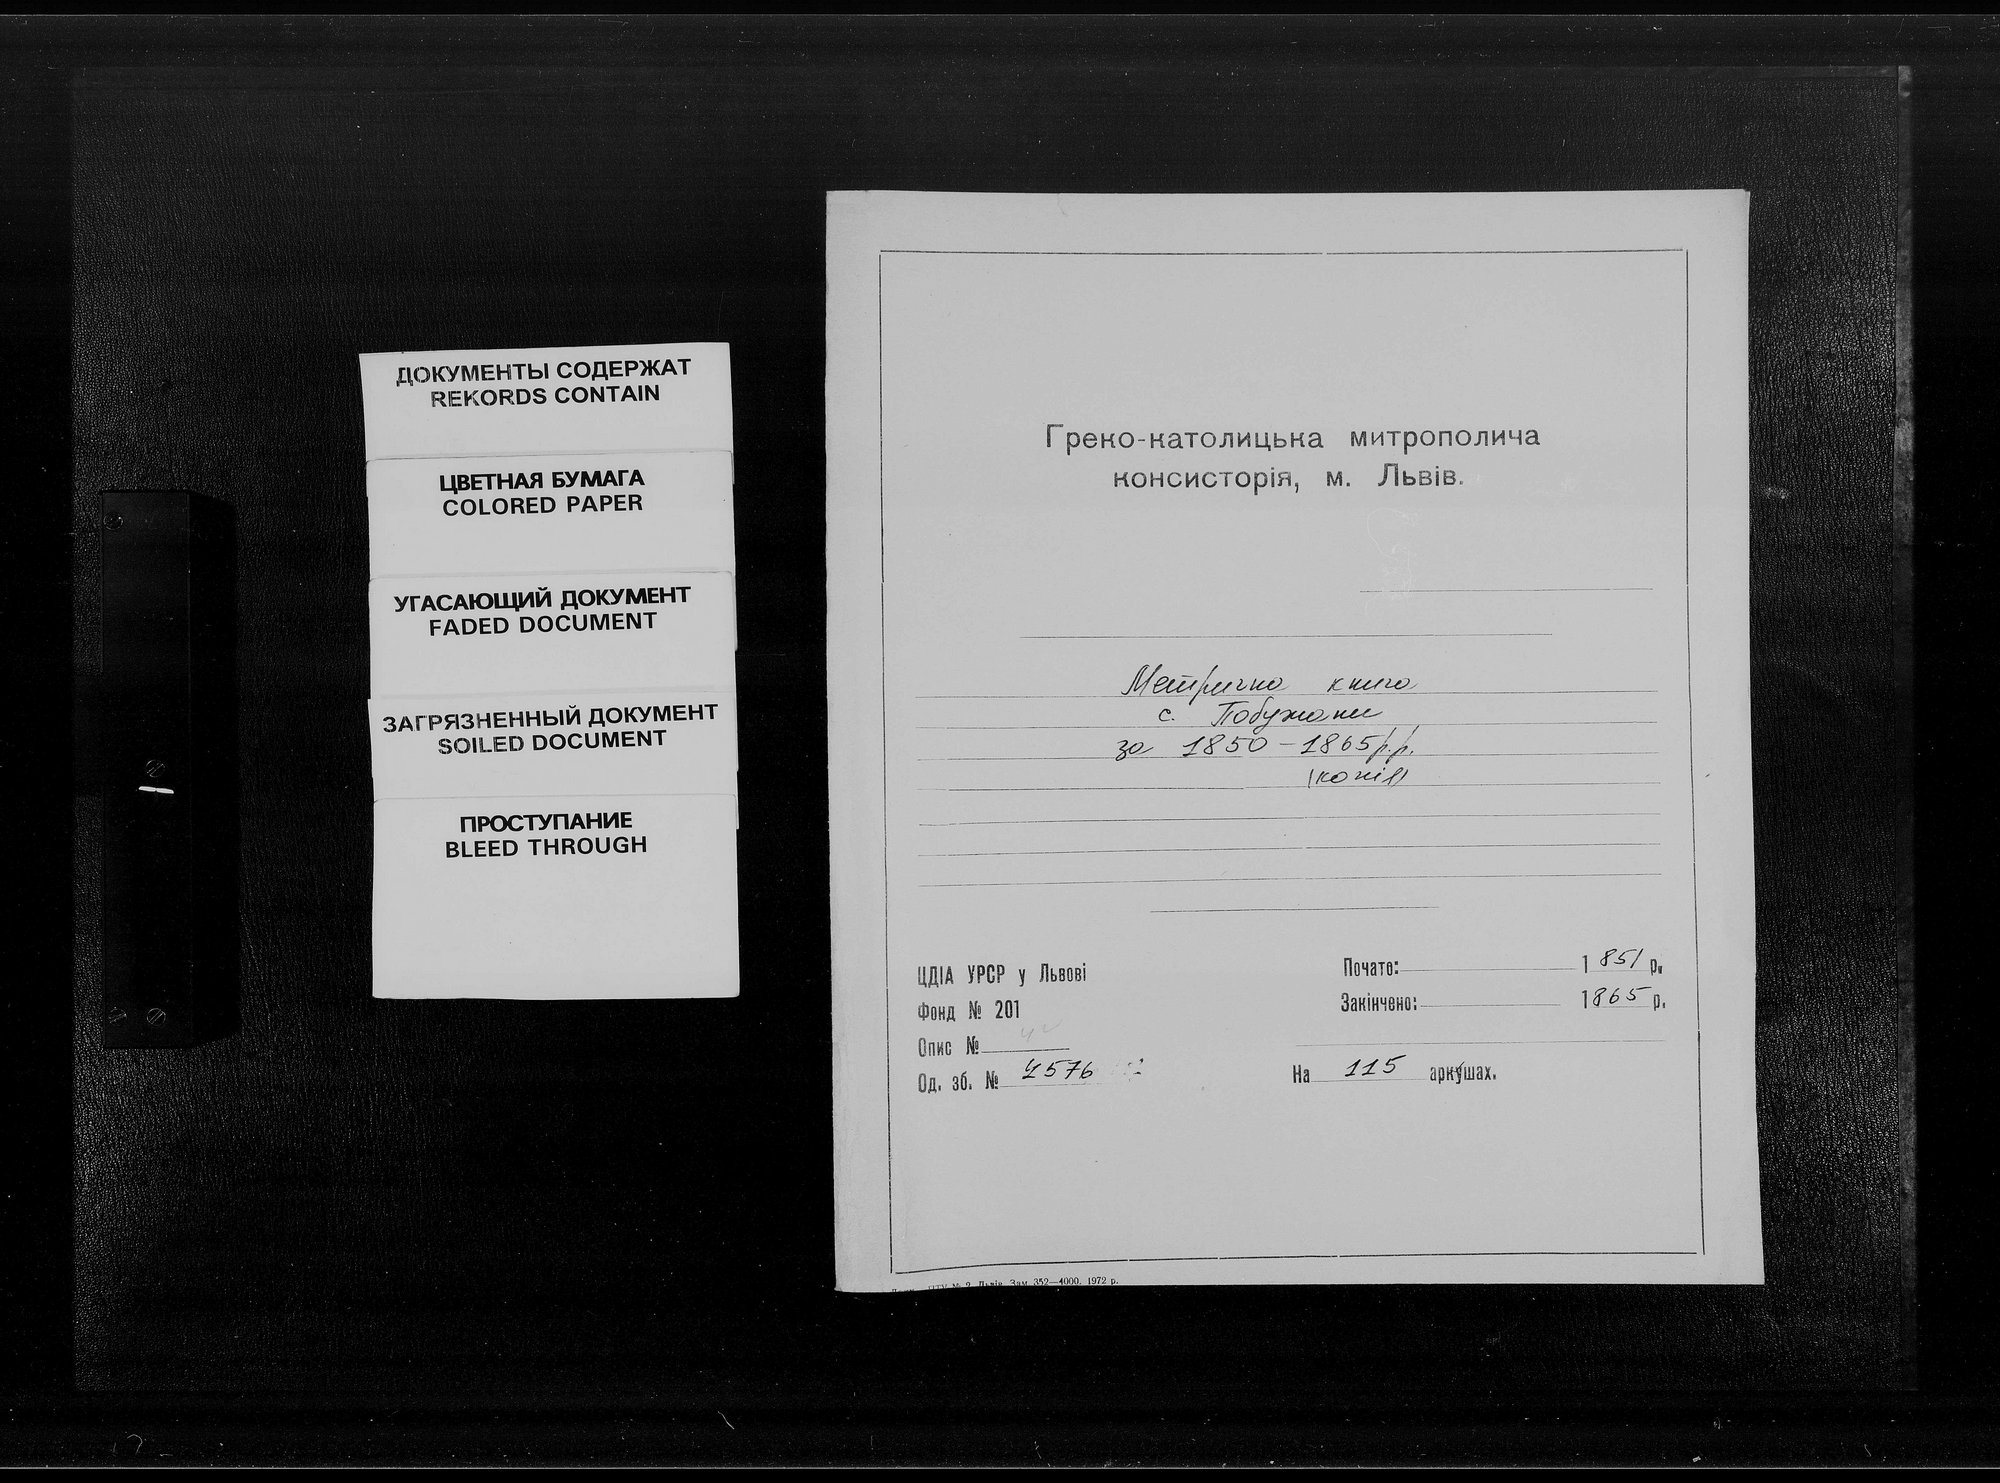 ДОКУМЕНТЫ СОДЕРЖАТ
REKORDS CONTAIN
ЦВЕТНАЯ БУМАГА
COLORED PAPER
УГАСАЮЩИЙ ДОКУМЕНТ
FADED DOCUMENT
ЗАГРЯЗНЕННЫЙ ДОКУМЕНТ
SOILED DOCUMENT
ПРОСТУПАНИЕ
BLEED THROUGH
Греко-католицька митрополича
консисторія, м. Львів.
Метрична книга
с. Побужани
за 1850-1865 р.р.
(копія)
ЦДІА УРСР у Львові
Фонд № 201
Опис №
Од. зб. № 4576
Почато: 1851 р.
Закінчено: 1865 р.
На 115 аркушах.
№ 2 Львів Зам. 352—4000. 1972 р.